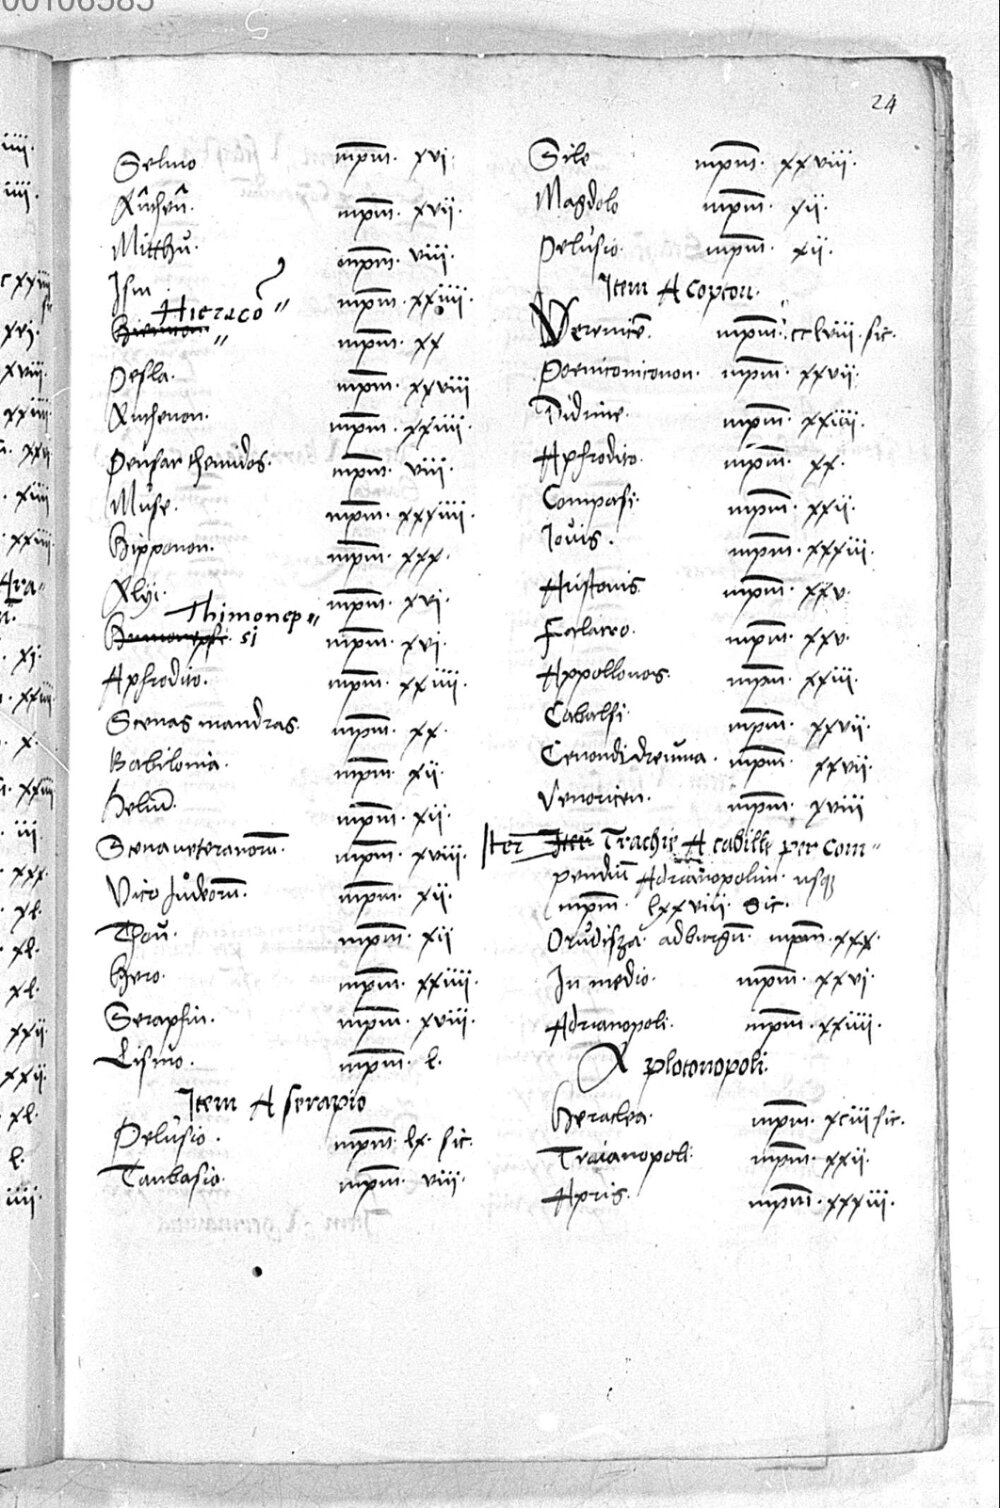 00106585
24
Selino mpm. xvi.
Antheu.
mpm. xvii.
Mitthu. mpm. viii.
Isin mpm. xxiiii.
Hieraco mpm. xx
Pesla. mpm. xxviii
Anthenon. mpm. xxiiii.
Pensarthemidos. mpm. viii.
Muse. mpm. xxxiiii.
Hipponon. mpm. xxx.
Alyi. mpm. xvi.
Thimonep
si mpm. xvi.
Aphrodito. mpm. xxiiii.
Scenas mandras. mpm. xx.
Babilonia. mpm. xii.
Heliu. mpm. xii.
Scena ueteranorum. mpm. xviii.
Vico Iudeorum. mpm. xii.
Thou. mpm. xii
Hero. mpm. xxiiii.
Serapiin. mpm. xviii.
Lismo. mpm. l.
Item A serapio
Pelusio. mpm. lx. sic.
Taubasio. mpm. viii.
Sile mpm. xxviii.
Magdolo mpm. xii.
Pelusio. mpm. xii.
Item A copton.
Verenice. mpm. cclviii. sic.
Poeniconiconon. mpm. xxvii.
Didime. mpm. xxiiii.
Aphrodito. mpm. xx.
Compasi. mpm. xxii.
Iouis. mpm. xxxiii.
Aristonis mpm. xxv.
Falacro. mpm. xxv.
Appollonos. mpm. xxiii.
Cabalsi. mpm. xxvii.
Cenondidreuma. mpm. xxvii.
Venoricen. mpm. xviii
Iter Trachie A cabille per com
pendiu Adrianopolim usq
mpm. lxxviii. sic.
Orudisza. adburgu. mpm. xxx.
In medio. mpm. xxvi.
Adrianopoli. mpm. xxiiii.
A plotonopoli.
Heraclea. mpm. xciii sic.
Traianopoli. mpm. xxii.
Apris. mpm. xxxiii.